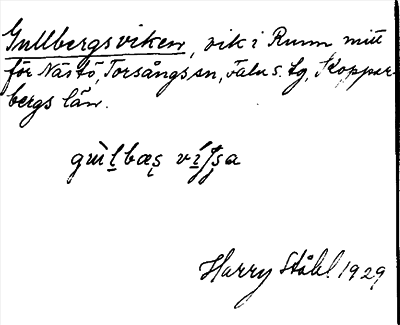 Gullbergsviken, vik i Runn mitt
för Näsö, Torsångs sn, Falu s. tg, Koppar-
bergs län.
Harry Ståhl 1929